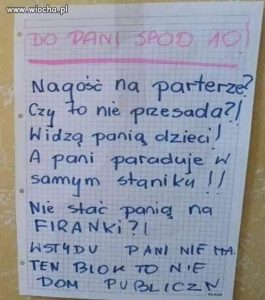 www.wiocha.pl
DO PANI SPOD 10!
Nagość na parterze?
Czy to nie przesada?!
Widzą panią dzieci!
A pani paraduje w
samym staniku!!
Nie stać panią na
FIRANKI?!
WSTYDU PANI NIE MA
TEN BLOK TO NIE
DOM PUBLICZN